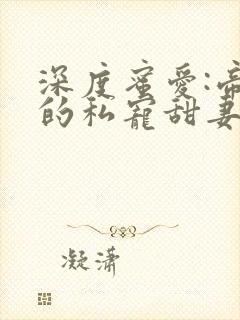 深度蜜爱:帝
的私寵甜妻
凝潇